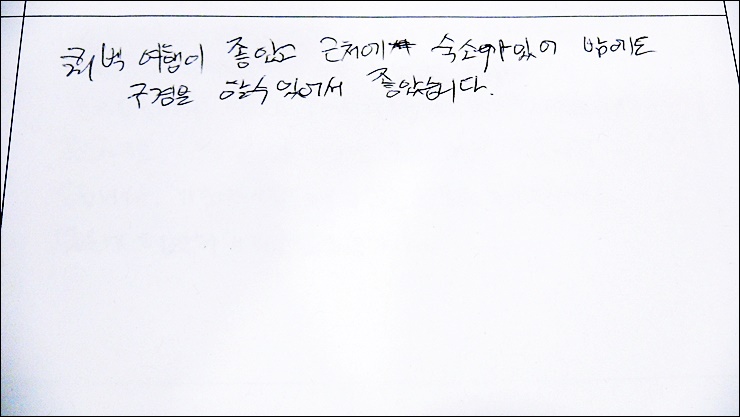 퀘벡 여행이 좋았고 근처에 숙소가 있어 밤에도
구경을 할수 있어서 좋았습니다.